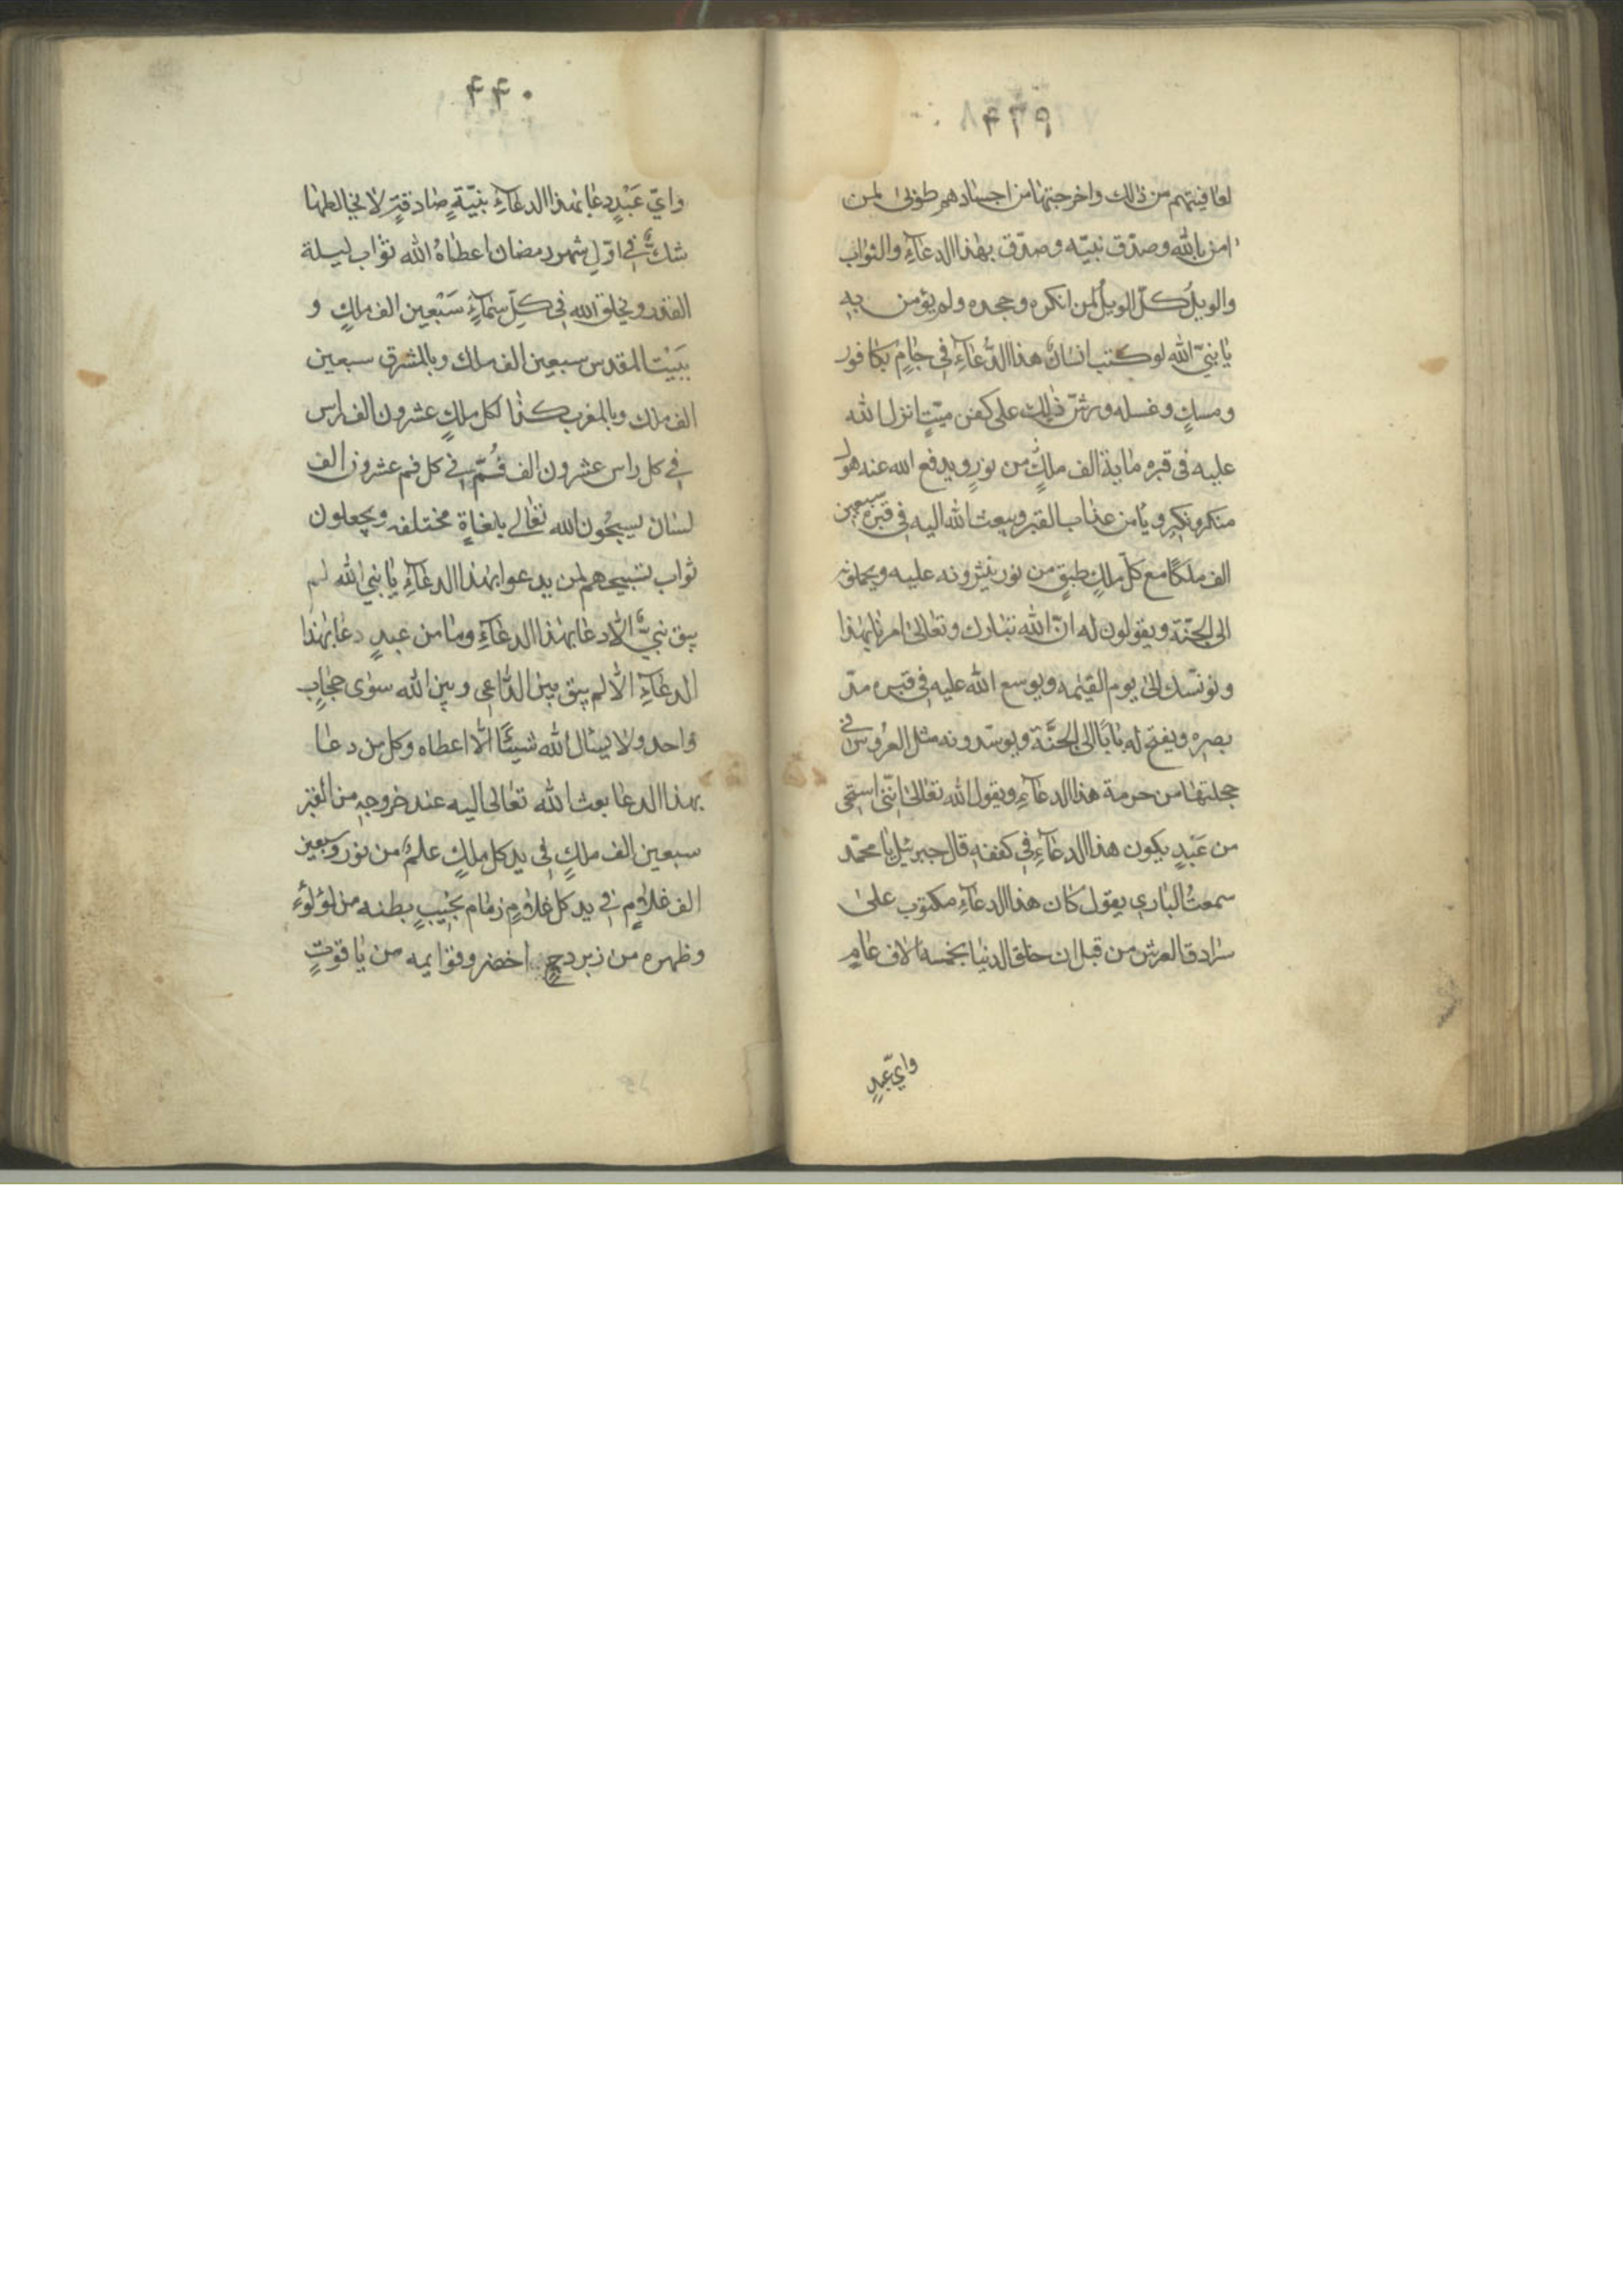 ۴۳۹
لعافيتهم من ذلك واخرجتها من اجسادهم طوبى لمن
امن بالله وصدق نبيّه وصدّق بهذا الدعاءِ والثواب
والويلُ كلّ الويلُ لمن انكره وجحده ولم يؤمن به
يا نبيّ الله لو كتب انسانٌ هذا الدُّعاءِ في جامٍ بكافور
ومسكٍ وغسله ورشّ ذلك على كفن ميّتٍ انزل الله
عليه في قبره ماية الف ملكٌ من نورٍ ويدفع الله عنه هول
منكر ونكيرٍ ويامن عذاب القبر ويبعث الله اليه في قبره سبعين
الف ملكًا مع كلّ ملكٍ طبقٍ من نور ينثرونه عليه ويحملونه
الى الجنّة ويقولون له انّ الله تبارك وتعالى امرنا بهذا
ونونسك الى يوم القيمه ويوسع الله عليه في قبره مدّ
بصره ويفتح له بابًا الى الجنَّة ويوسّدونه مثل العروس في
حجلتها من حرمة هذا الدعاءِ ويقول الله تعالى انّنى استحى
من عَبْدٍ يكون هذا الدعاءِ في كفنه قال جبرئيل يا محمّد
سمعتُ البارى يقول كان هذا الدعاءِ مكتوب على
سرادق العرش من قبل ان خلق الدنيا بخمسة الاف عامٍ
واىّ عبدٍ
۴۴۰
واىّ عَبْدٍ دعا بهذا الدعاءِ بنيّةٍ صادقةٍ لا يخالطها
شكٌّ في اوّلِ شهر رمضان اعطاهُ الله ثواب ليلة
القدر ويخلق الله في كلّ سماءٍ سَبْعين الف ملكٍ و
ببَيْت المقدس سبعين الف ملك وبالمشرق سبعين
الف ملك وبالمغرب كذا لكل ملكٍ عشرون الف راس
في كل راس عشرون الف فُمّ في كل فم عشرون الف
لسان يسبحُون الله تعالى بلغاةٍ مختلفه ويجعلون
ثواب تسبيحهم لمن يدعوا بهذا الدعاءِ يا نبي الله لم
يبق نبيٌّ الّا دعا بهذا الدعاءِ وما من عبدٍ دعا بهذا
الدعاءِ الّا لم يبق بين الدّاعى وبين الله سوى حجابٍ
واحد ولا يسئال الله شيئًا الّا اعطاه وكل من دعا
بهذا الدعا بعث الله تعالى اليه عند خروجه من القبر
سبعين الف ملكٍ في يد كل ملكٍ علمٌ من نور وسبعين
الف غلامٍ في يد كل غلامٍ زمام نجيبٍ بطنه من لؤلؤءِ
وظهره من زبردجٍ اخضر وقوايمه من ياقوتٍ